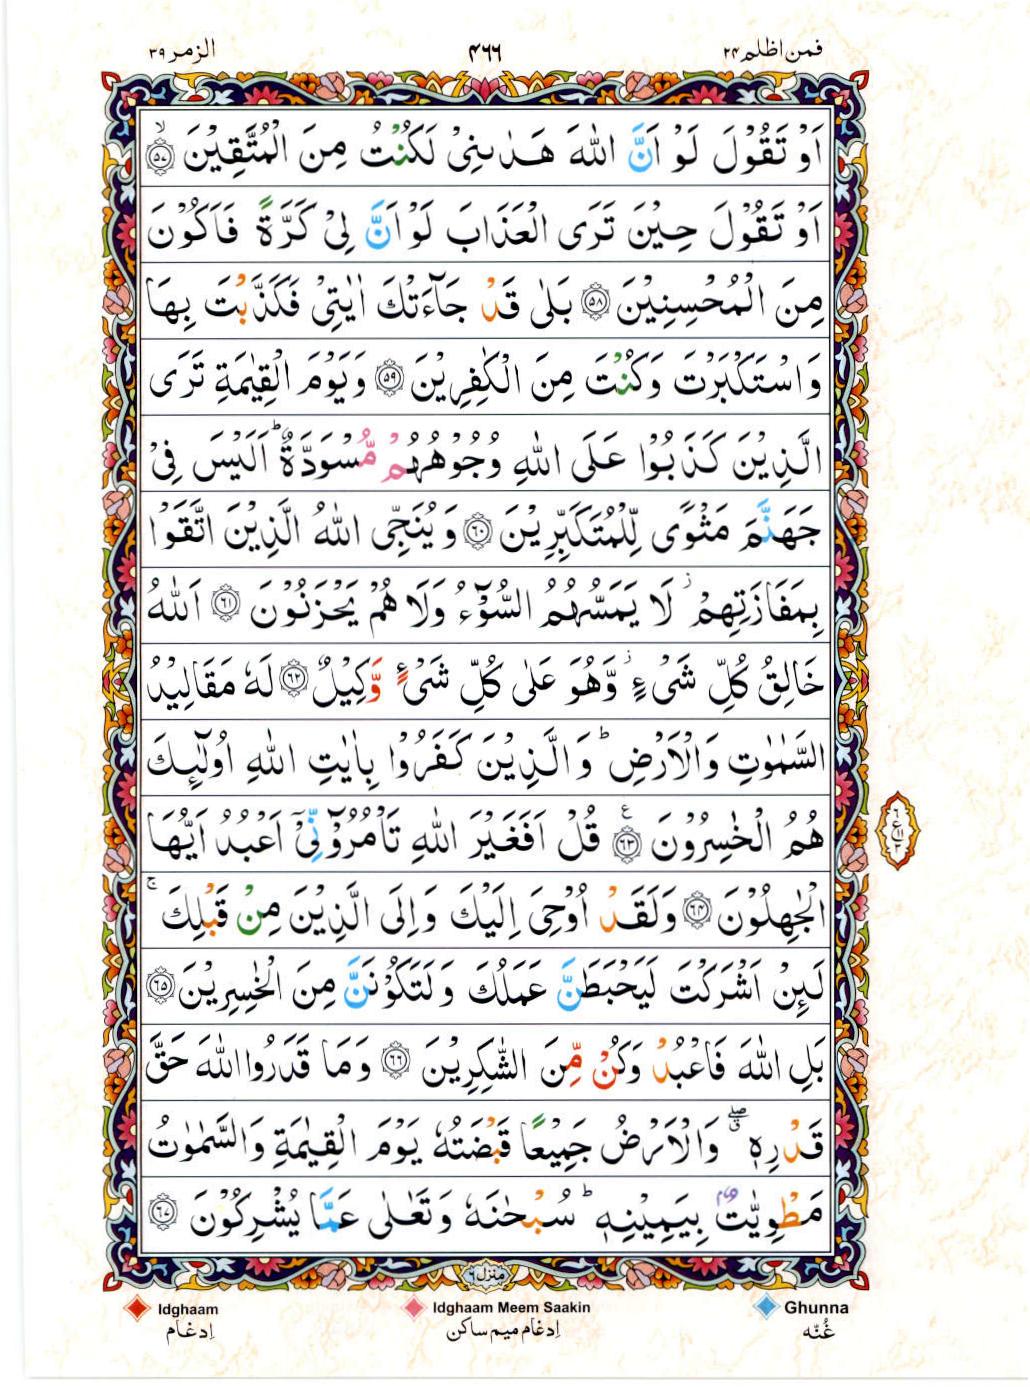 فمن اظلم ۲۴
۴۶۶
الزمر ۳۹
اَوْ تَقُوْلَ لَوْ اَنَّ اللّٰهَ هَدٰىنِیْ لَكُنْتُ مِنَ الْمُتَّقِیْنَ ۙ﴿۵۷﴾
اَوْ تَقُوْلَ حِیْنَ تَرَی الْعَذَابَ لَوْ اَنَّ لِیْ كَرَّةً فَاَكُوْنَ
مِنَ الْمُحْسِنِیْنَ ﴿۵۸﴾ بَلٰی قَدْ جَآءَتْكَ اٰیٰتِیْ فَكَذَّبْتَ بِهَا
وَاسْتَكْبَرْتَ وَكُنْتَ مِنَ الْكٰفِرِیْنَ ﴿۵۹﴾ وَیَوْمَ الْقِیٰمَةِ تَرَی
الَّذِیْنَ كَذَبُوْا عَلَی اللّٰهِ وُجُوْهُهُمْ مُّسْوَدَّةٌ ؕ اَلَیْسَ فِیْ
جَهَنَّمَ مَثْوًی لِّلْمُتَكَبِّرِیْنَ ﴿۶۰﴾ وَیُنَجِّی اللّٰهُ الَّذِیْنَ اتَّقَوْا
بِمَفَازَتِهِمْ ؗ لَا یَمَسُّهُمُ السُّوْٓءُ وَلَا هُمْ یَحْزَنُوْنَ ﴿۶۱﴾ اَللّٰهُ
خَالِقُ كُلِّ شَیْءٍ ؗ وَّهُوَ عَلٰی كُلِّ شَیْءٍ وَّكِیْلٌ ﴿۶۲﴾ لَهٗ مَقَالِیْدُ
السَّمٰوٰتِ وَالْاَرْضِ ؕ وَالَّذِیْنَ كَفَرُوْا بِاٰیٰتِ اللّٰهِ اُولٰٓىِٕكَ
هُمُ الْخٰسِرُوْنَ ﴿۶۳﴾ ع قُلْ اَفَغَیْرَ اللّٰهِ تَاْمُرُوْٓنِّیْٓ اَعْبُدُ اَیُّهَا
الْجٰهِلُوْنَ ﴿۶۴﴾ وَلَقَدْ اُوْحِیَ اِلَیْكَ وَاِلَی الَّذِیْنَ مِنْ قَبْلِكَ ۚ
لَىِٕنْ اَشْرَكْتَ لَیَحْبَطَنَّ عَمَلُكَ وَلَتَكُوْنَنَّ مِنَ الْخٰسِرِیْنَ ﴿۶۵﴾
بَلِ اللّٰهَ فَاعْبُدْ وَكُنْ مِّنَ الشّٰكِرِیْنَ ﴿۶۶﴾ وَمَا قَدَرُوا اللّٰهَ حَقَّ
قَدْرِهٖ ۖۗ وَالْاَرْضُ جَمِیْعًا قَبْضَتُهٗ یَوْمَ الْقِیٰمَةِ وَالسَّمٰوٰتُ
مَطْوِیّٰتٌۢ بِیَمِیْنِهٖ ؕ سُبْحٰنَهٗ وَتَعٰلٰی عَمَّا یُشْرِكُوْنَ ﴿۶۷﴾
۶
ع ۱۱
۳
منزل ۶
Idghaam
اِدغام
Idghaam Meem Saakin
اِدغام میم ساکن
Ghunna
غُنّه